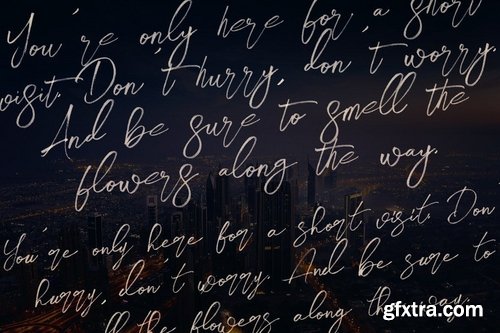 You're only here for a short
visit. Don't hurry, don't worry
And be sure to smell the
flowers along the way.
You're only here for a short visit. Don
hurry, don't worry. And be sure to
ll the flowers along the way.
gfxtra.com